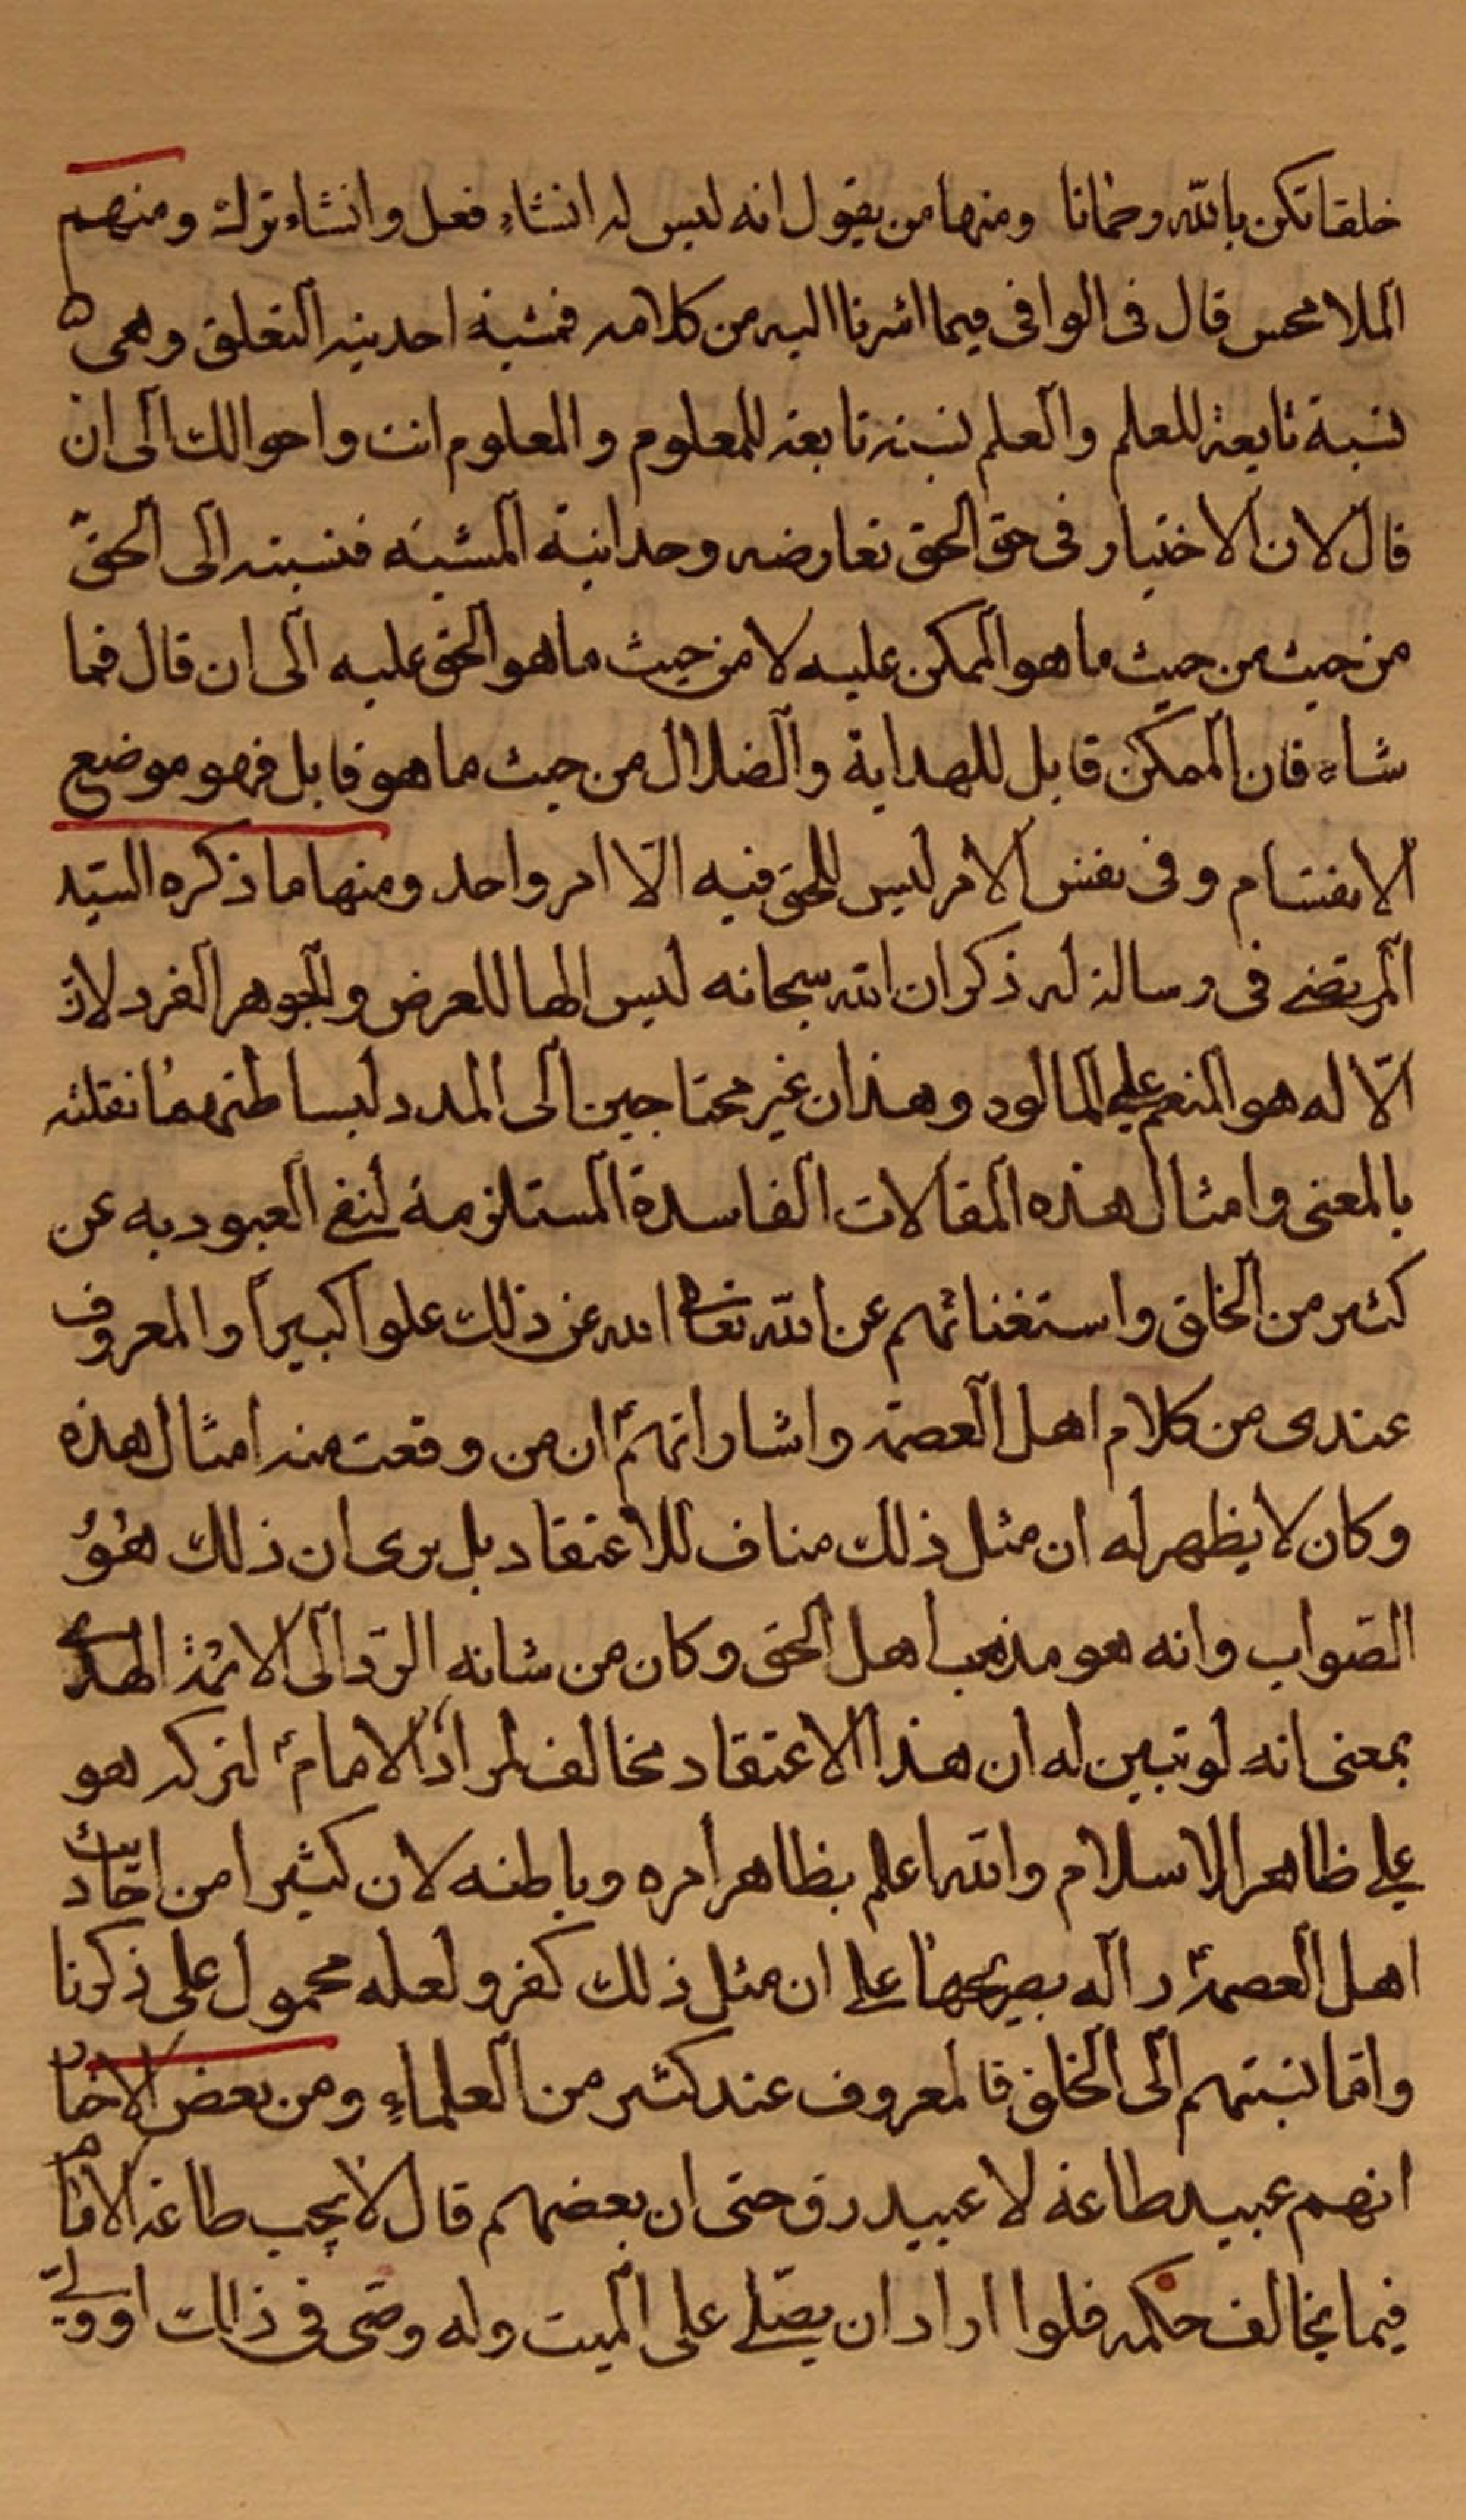 خلقا تكن بالله وضمانا ومنها من يقول انه ليس له انشاء فعل وانشاء ترك ومنهم
الملا محسن قال فى الوافى فيما اشرنا اليه من كلامه فمشية احدية التعلق وهى
نسبة تابعة للعلم والعلم نسبة تابعة للمعلوم والمعلوم انت واحوالك الى ان
قال لان الاختيار فى حق الحق تعارضه وحدانية المشية فنسبته الى الحق
من حيث من حيث ما هو الممكن عليه لا من حيث ما هو الحق عليه الى ان قال فما
شاء فان الممكن قابل للهداية والضلال من حيث ما هو قابل فهو موضع
الانقسام وفى نفس الامر ليس للحق فيه الا امر واحد ومنها ما ذكره السيد
المرتضى فى رسالة له ذكر ان الله سبحانه ليس الها للعرض والجوهر الفرد لان
الاله هو المنعم على المالوه وهذان غير محتاجين الى المدد لبساطتهما نقلته
بالمعنى وامثال هذه المقالات الفاسدة المستلزمة لنفى العبوديه عن
كثير من الخلق واستغنائهم عن الله تعالى الله عن ذلك علوا كبيرا والمعروف
عندى من كلام اهل العصمة واشاراتهم ان من وقعت منه امثال هذه
وكان لا يظهر له ان مثل ذلك مناف للاعتقاد بل يرى ان ذلك هو
الصواب وانه هو مذهب اهل الحق وكان من شانه الرد الى الائمة الهدى
بمعنى انه لو تبين له ان هذا الاعتقاد مخالف لمراد الامام لتركه هو
على ظاهر الاسلام والله اعلم بظاهر امره وباطنه لان كثيرا من احاديث
اهل العصمة دالة بصريحها على ان مثل ذلك كفر ولعله محمول على ذكرنا
واما نسبتهم الى الخلق فالمعروف عند كثير من العلماء ومن بعض الاخبار
انهم عبيد طاعة لا عبيد رق حتى ان بعضهم قال لا يجب طاعة الامام
فيما يخالف حكمه فلوا اراد ان يصلى على الميت وله وصى فى ذلك او ولى